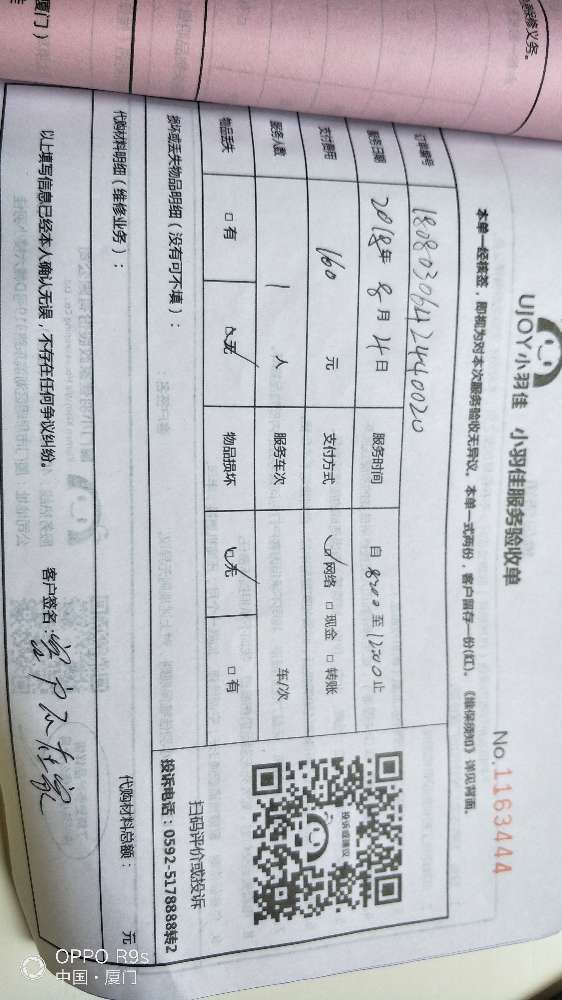 UJOY小羽佳 小羽佳服务验收单
No.1163444
本单一经核签，即视为对本次服务验收无异议。本单一式两份，客户留存一份(红)。《维保须知》详见背面。
订单编号 18080306424440020
服务日期 2018年 8月 4日 服务时间 自 8:00 至 12:00 止
支付费用 160 元 支付方式 ☑网络 □现金 □转账
服务人数 1 人 服务车次 车/次
物品丢失 □有 ☑无 物品损坏 ☑无 □有
损坏或丢失物品明细（没有可不填）：
投诉或建议
扫码评价或投诉
投诉电话：0592-5178888转2
代购材料明细（维修业务）：
代购材料总额： 元
以上填写信息已经本人确认无误，不存在任何争议纠纷。 客户签名：客户不在家
厦门）
修义务。
OPPO R9s
中国·厦门